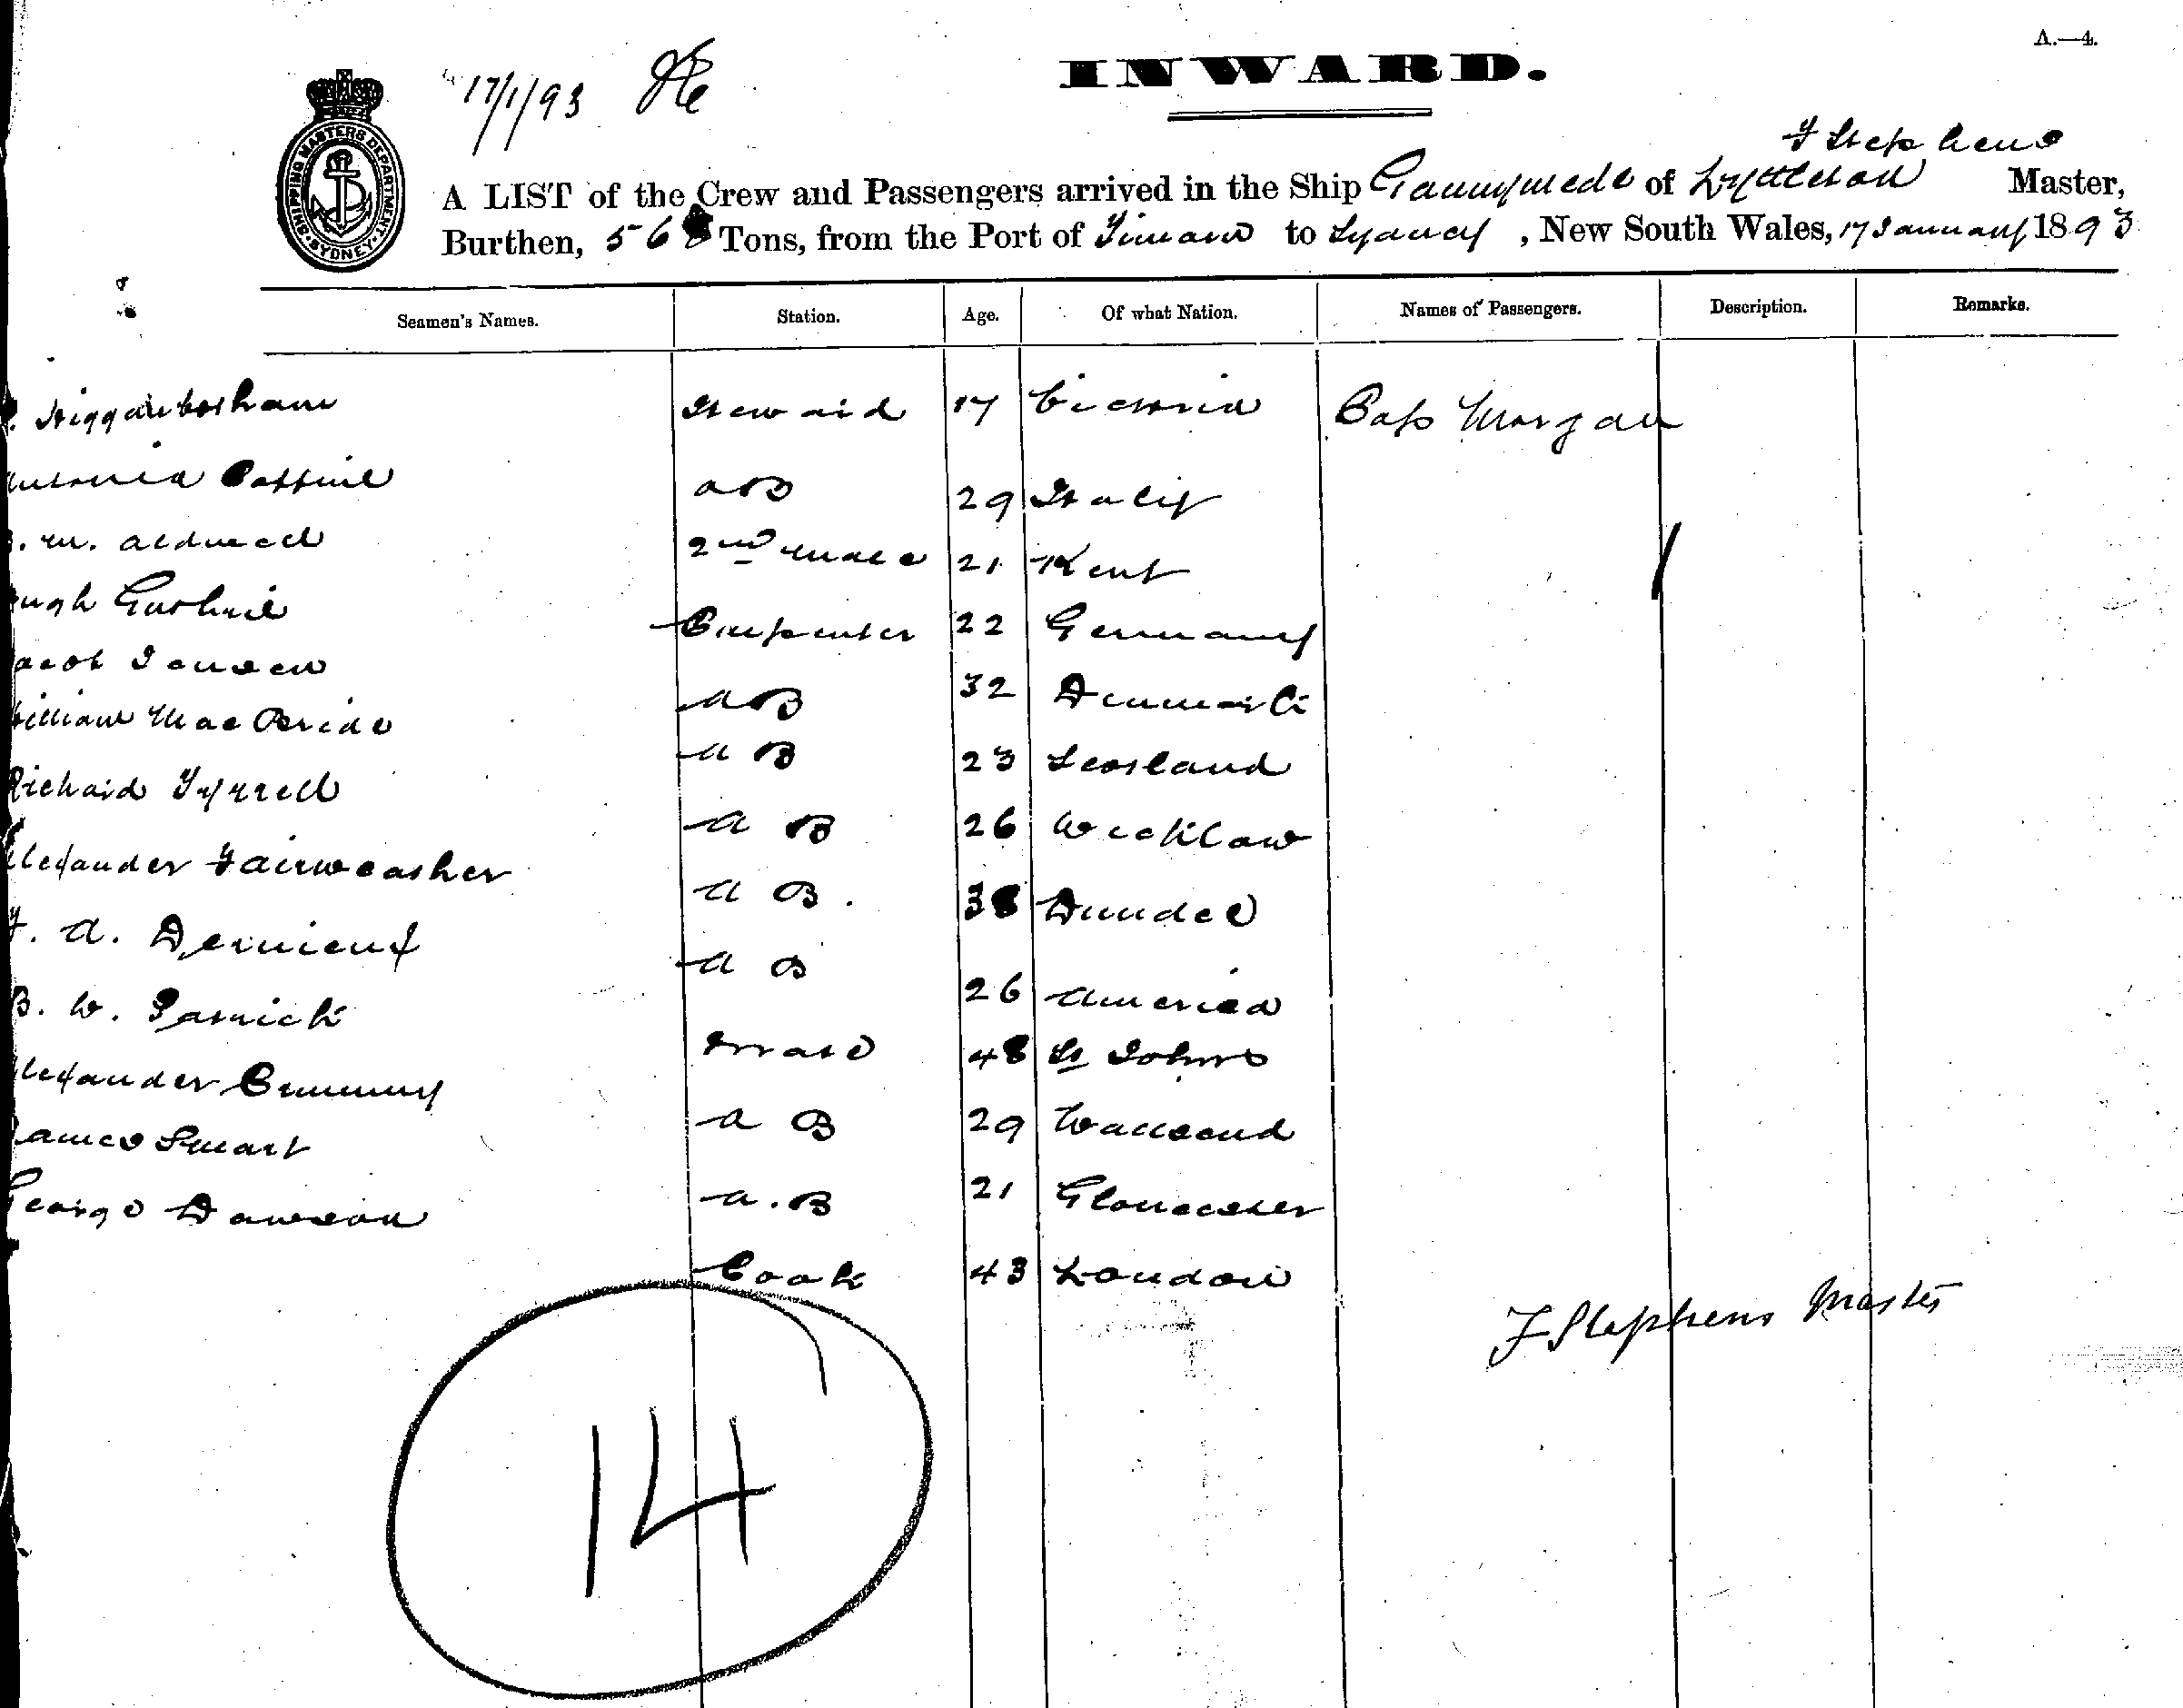 A.—4.
17/1/93
INWARD.
SHIPPING MASTERS DEPARTMENT · SYDNEY ·
F Stephens
A LIST of the Crew and Passengers arrived in the Ship Gannymede of Lyttleton Master,
Burthen, 568 Tons, from the Port of Timaru to Sydney, New South Wales, 17 January 1893
Seamen's Names. Station. Age. Of what Nation. Names of Passengers. Description. Remarks.
Higginbotham Steward 17 Victoria Capt Morgan
AB 29 Italy
2nd mate 21 Kent
Hugh Guthrie Carpenter 22 Germany
Jacob Jensen AB 32 Denmark
William MacBride A B 23 Scotland
Richard Tyrrell A B 26 Wicklow
Alexander Fairweather A B. 38 Dundee
F. A. A B 26 America
B. W. 48 St Johns
Alexander A B 29
James Smart A.B 21 Gloucester
George Dawson Cook 43 London
F Stephens Master
14